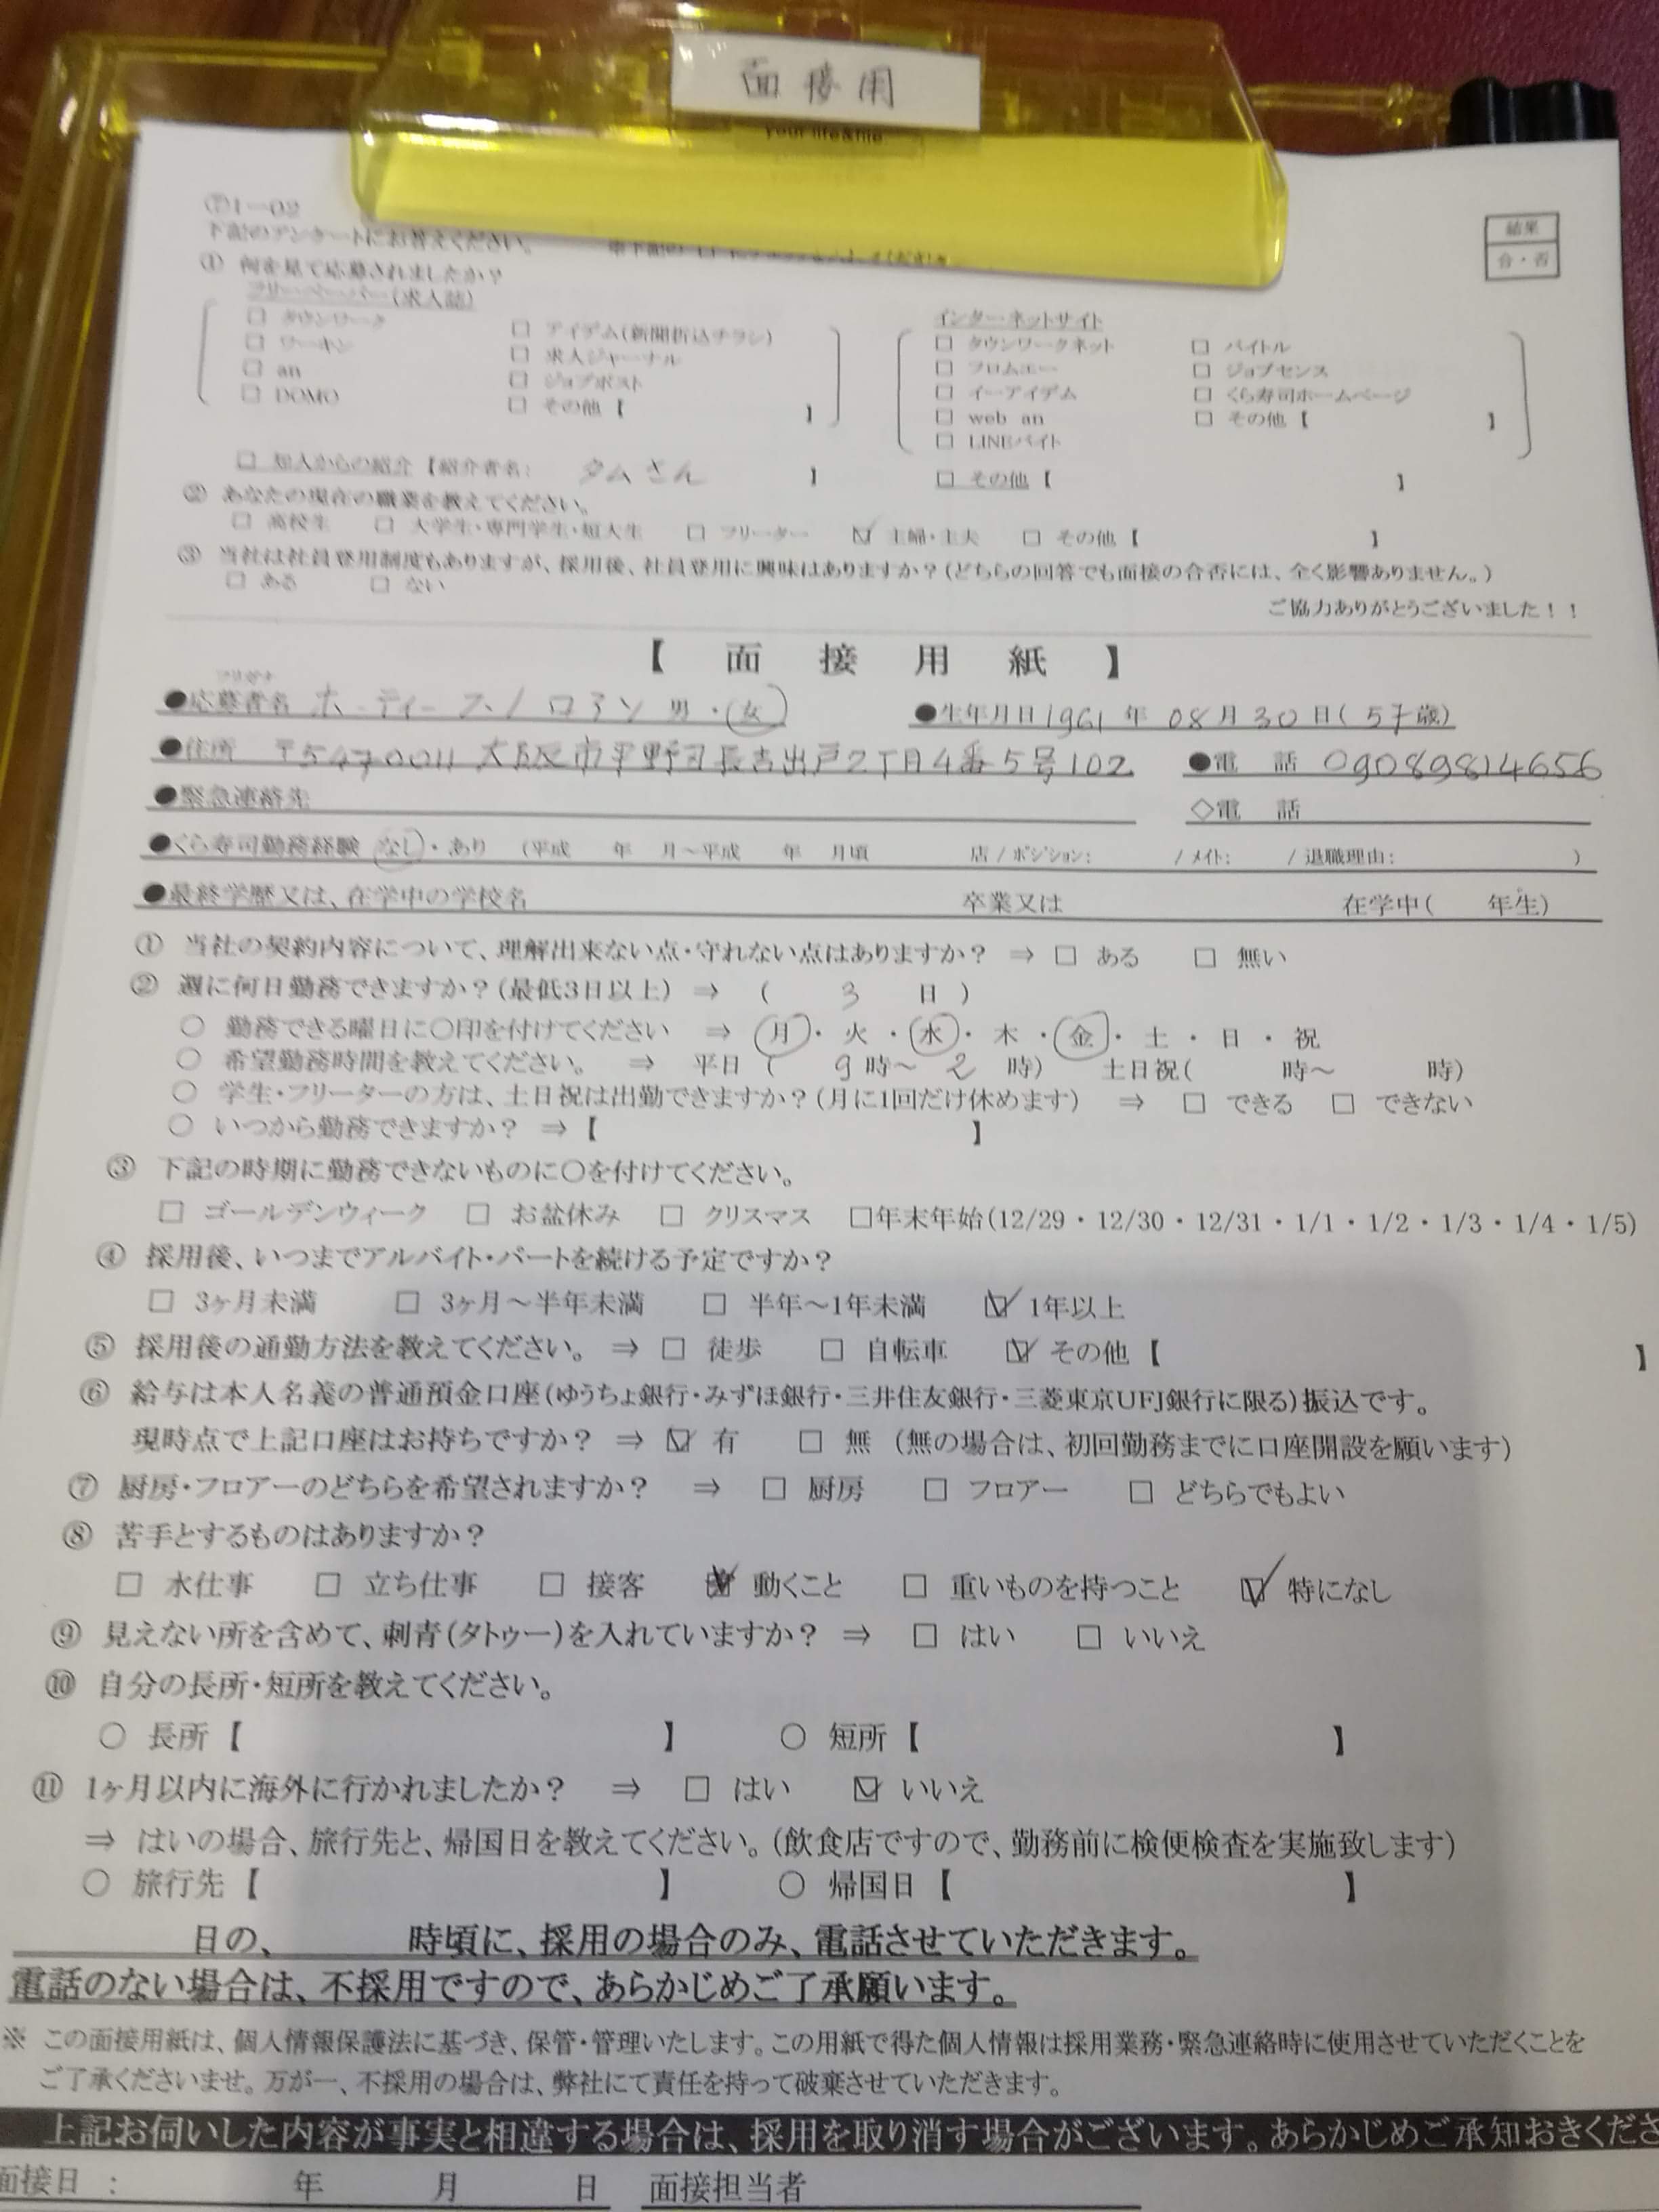 面接用
your life&file
⑦1-02
下記のアンケートにお答えください。
① 何を見て応募されましたか？
フリーペーパー(求人誌)
□ タウンワーク □ アイデム(新聞折込チラシ)
□ ワーキン □ 求人ジャーナル
□ an □ ジョブポスト
□ DOMO □ その他【 】
インターネットサイト
□ タウンワークネット □ バイトル
□ フロムエー □ ジョブセンス
□ イーアイデム □ くら寿司ホームページ
□ web an □ その他【 】
□ LINEバイト
結果
合・否
□ 知人からの紹介【紹介者名: タムさん 】 □ その他【 】
② あなたの現在の職業を教えてください。
□ 高校生 □ 大学生・専門学生・短大生 □ フリーター ☑ 主婦・主夫 □ その他【 】
③ 当社は社員登用制度もありますが、採用後、社員登用に興味はありますか？(どちらの回答でも面接の合否には、全く影響ありません。)
□ ある □ ない
ご協力ありがとうございました！！
【 面 接 用 紙 】
フリガナ
●応募者名 ホーティー 男・女 ●生年月日1961年08月30日(57歳)
●住所 〒5470011 大阪市平野区長吉出戸2丁目4番5号102 ●電 話 09089814656
●緊急連絡先 ◇電 話
●くら寿司勤務経験 なし・あり (平成 年 月～平成 年 月頃 店/ポジション: /メイト: /退職理由: )
●最終学歴又は、在学中の学校名 卒業又は 在学中( 年生)
① 当社の契約内容について、理解出来ない点・守れない点はありますか？ ⇒ □ ある □ 無い
② 週に何日勤務できますか？(最低3日以上) ⇒ ( 3 日)
○ 勤務できる曜日に○印を付けてください ⇒ 月・火・水・木・金・土・日・祝
○ 希望勤務時間を教えてください。 ⇒ 平日 ( 9 時～ 2 時) 土日祝( 時～ 時)
○ 学生・フリーターの方は、土日祝は出勤できますか？(月に1回だけ休めます) ⇒ □ できる □ できない
○ いつから勤務できますか？ ⇒【 】
③ 下記の時期に勤務できないものに○を付けてください。
□ ゴールデンウィーク □ お盆休み □ クリスマス □年末年始(12/29・12/30・12/31・1/1・1/2・1/3・1/4・1/5)
④ 採用後、いつまでアルバイト・パートを続ける予定ですか？
□ 3ヶ月未満 □ 3ヶ月～半年未満 □ 半年～1年未満 ☑ 1年以上
⑤ 採用後の通勤方法を教えてください。 ⇒ □ 徒歩 □ 自転車 ☑ その他【 】
⑥ 給与は本人名義の普通預金口座(ゆうちょ銀行・みずほ銀行・三井住友銀行・三菱東京UFJ銀行に限る)振込です。
現時点で上記口座はお持ちですか？ ⇒ ☑ 有 □ 無 (無の場合は、初回勤務までに口座開設を願います)
⑦ 厨房・フロアーのどちらを希望されますか？ ⇒ □ 厨房 □ フロアー □ どちらでもよい
⑧ 苦手とするものはありますか？
□ 水仕事 □ 立ち仕事 □ 接客 ☑ 動くこと □ 重いものを持つこと ☑ 特になし
⑨ 見えない所を含めて、刺青(タトゥー)を入れていますか？ ⇒ □ はい □ いいえ
⑩ 自分の長所・短所を教えてください。
○ 長所【 】 ○ 短所【 】
⑪ 1ヶ月以内に海外に行かれましたか？ ⇒ □ はい ☑ いいえ
⇒ はいの場合、旅行先と、帰国日を教えてください。(飲食店ですので、勤務前に検便検査を実施致します)
○ 旅行先【 】 ○ 帰国日【 】
日の、 時頃に、採用の場合のみ、電話させていただきます。
電話のない場合は、不採用ですので、あらかじめご了承願います。
※ この面接用紙は、個人情報保護法に基づき、保管・管理いたします。この用紙で得た個人情報は採用業務・緊急連絡時に使用させていただくことを
ご了承くださいませ。万が一、不採用の場合は、弊社にて責任を持って破棄させていただきます。
上記お伺いした内容が事実と相違する場合は、採用を取り消す場合がございます。あらかじめご承知おきくださ
面接日 : 年 月 日 面接担当者